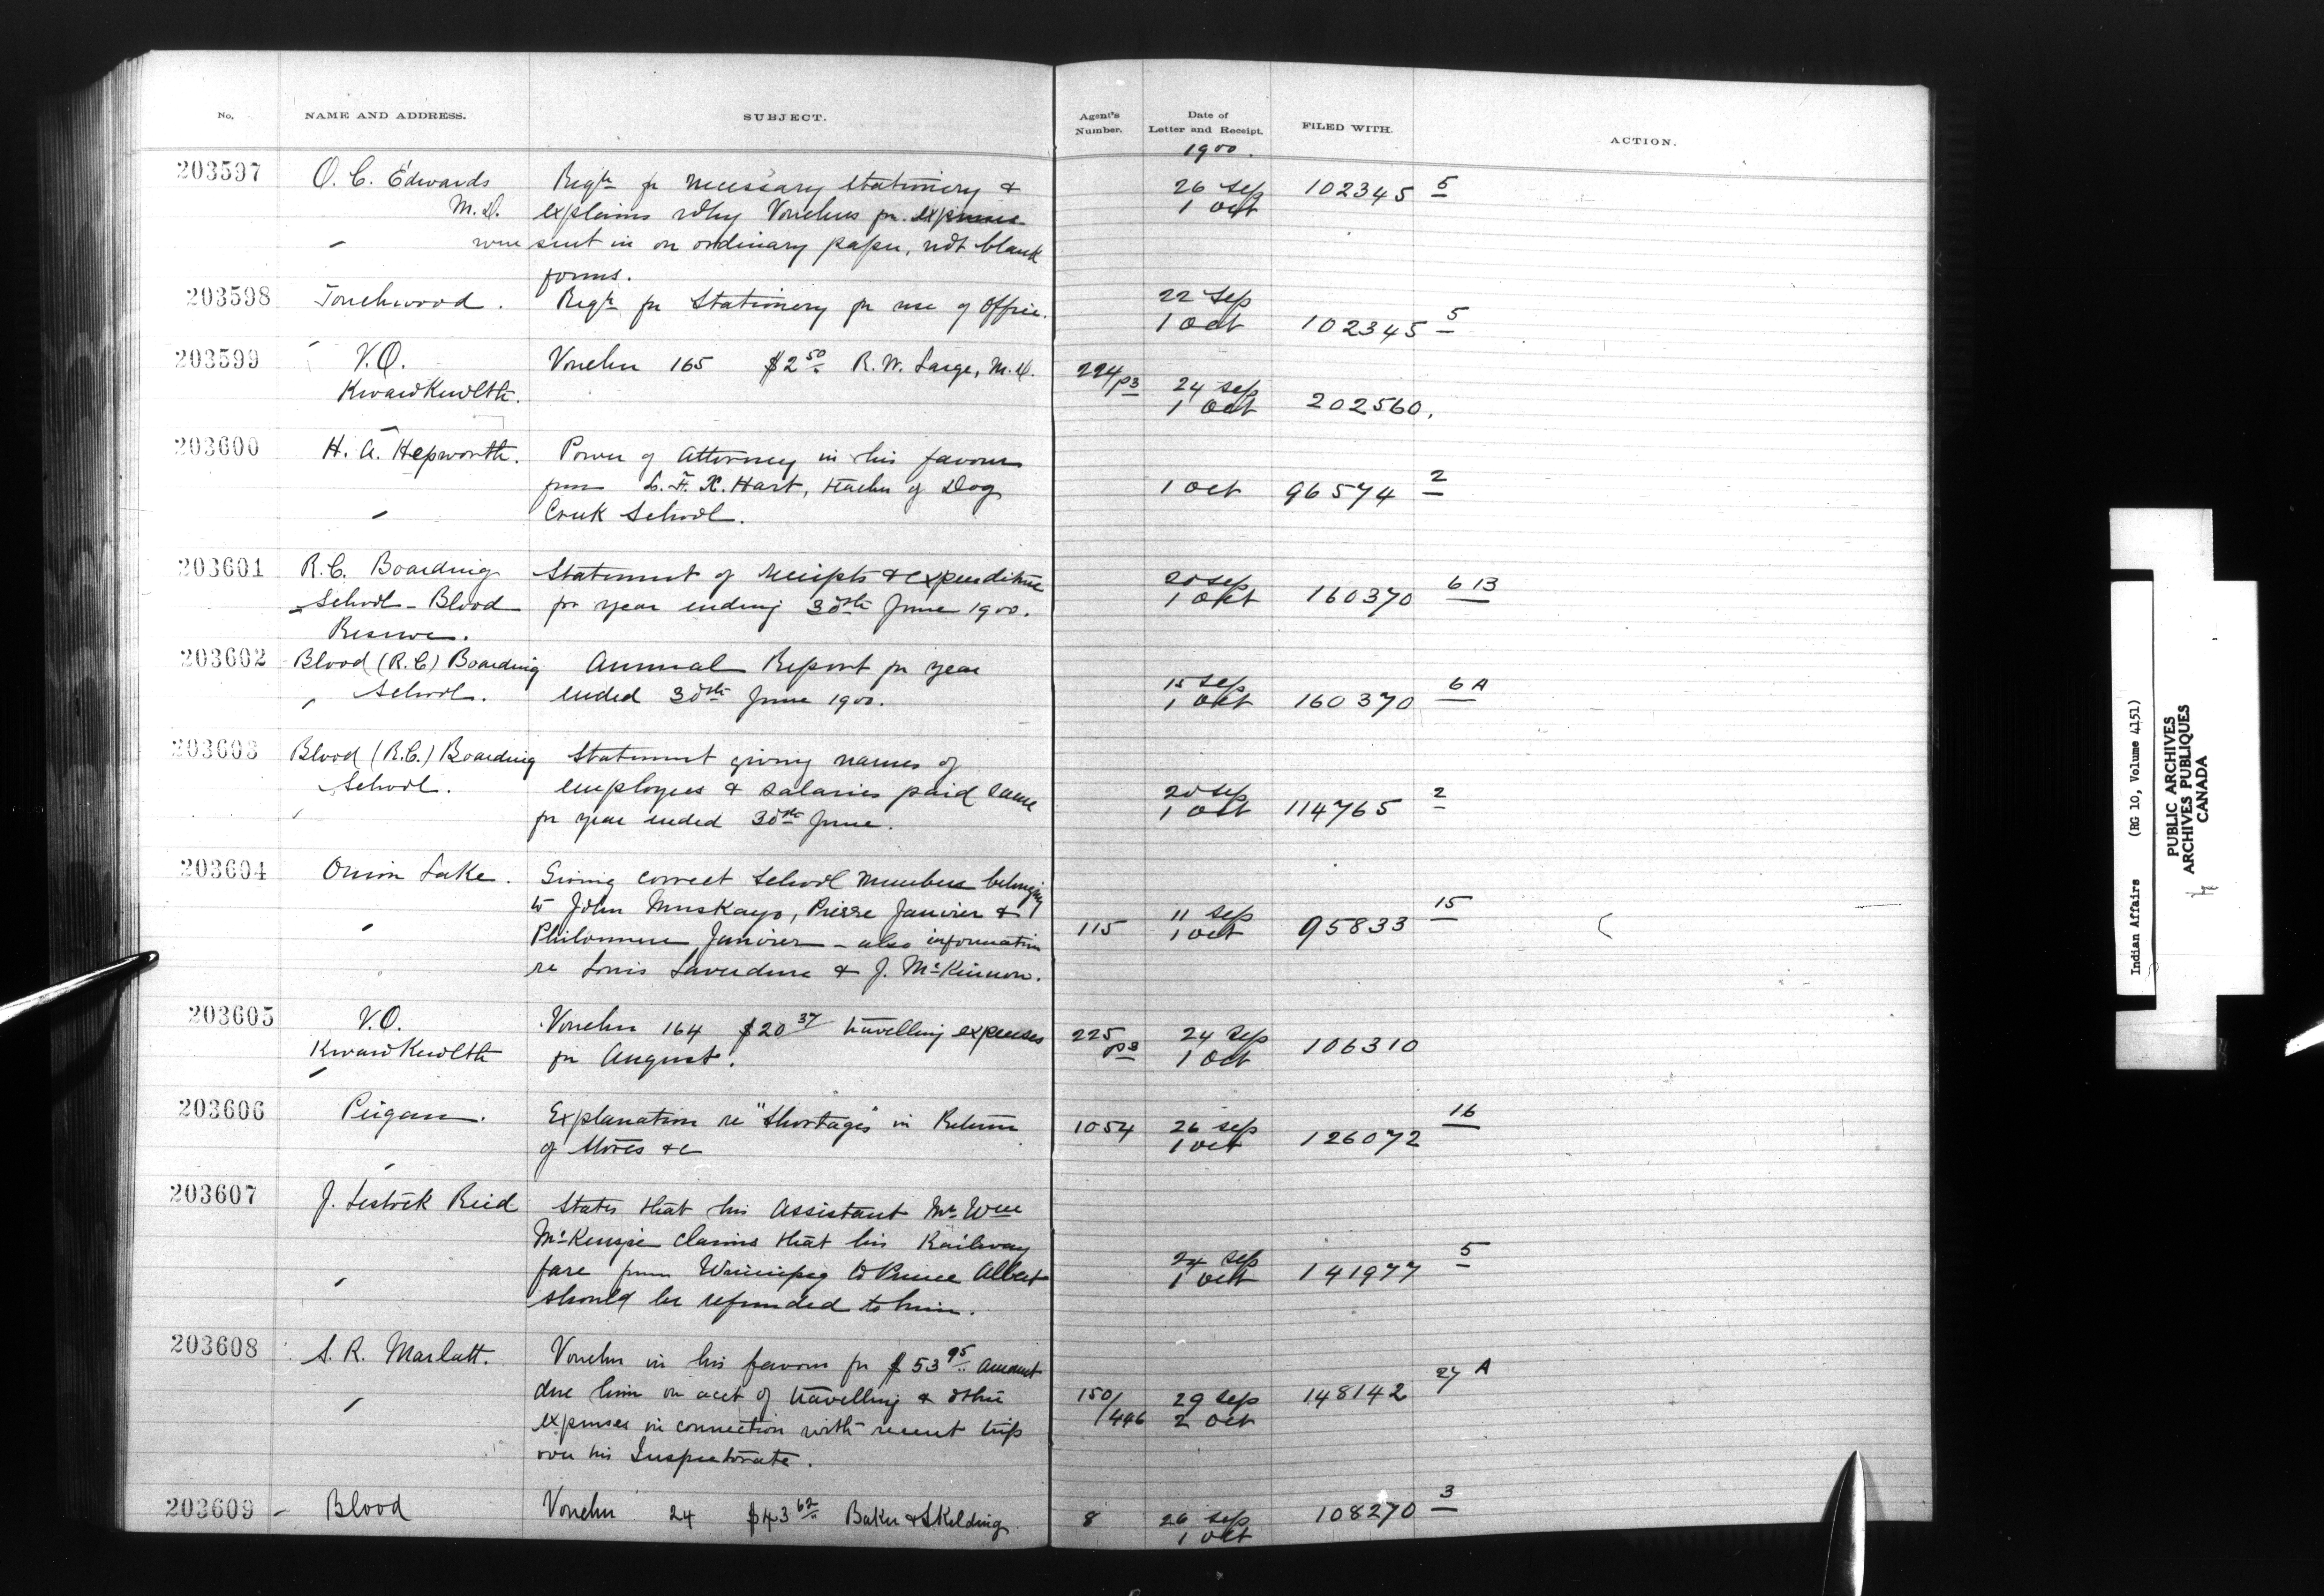 No. NAME AND ADDRESS. SUBJECT. Agent's Number. Date of Letter and Receipt. FILED WITH. ACTION.
1900.
203597 O. C. Edwards Reqn for necessary stationery & 26 Sep 102345 5
M.D. explains why Vouchers for expenses 1 Oct
were sent in on ordinary paper, not blank
forms.
203598 Touchwood. Reqn for Stationery for use of Office. 22 Sep
1 Oct 102345 5
203599 V.O. Voucher 165 $2 50 R. W. Large, M.D. 224/p3 24 Sep
KwawKewlth. 1 Oct 202560.
203600 H. A. Hepworth. Power of Attorney in his favour
from L. F. X. Hart, teacher of Dog 1 Oct 96574 2
Creek School.
203601 R.C. Boarding Statement of receipts & expenditure 20 Sep
School - Blood for year ending 30th June 1900. 1 Oct 160370 6 B
Reserve.
203602 Blood (R.C) Boarding Annual Report for year 15 Sep
School. ended 30th June 1900. 1 Oct 160370 6 A
203603 Blood (R.C.) Boarding Statement giving names of
School. employees & salaries paid same 20 Sep
for year ended 30th June. 1 Oct 114765 2
203604 Onion Lake. Giving correct School numbers belonging
to John Muskayo, Pierre Janvier & 115 11 Sep 95833 15
Philomene Janvier - also information 1 Oct
re Louis Laverdure & J. McKinnon.
203605 V.O. Voucher 164 $20 37 travelling expenses 225/p3 24 Sep
KwawKewlth for August. 1 Oct 106310
203606 Peigan. Explanation re "Shortages" in Return 1054 26 Sep 126072 16
of Stores &c 1 Oct
203607 J. Lestock Reid States that his Assistant Mr. Wm
McKenzie claims that his Railway
fare from Winnipeg to Prince Albert 24 Sep 141977 5
should be refunded to him. 1 Oct
203608 S. R. Marlatt. Voucher in his favour for $53 95 amount
due him on acct of travelling & other 150/446 29 Sep 148142 27 A
expenses in connection with recent trip 2 Oct
over his Inspectorate.
203609 - Blood Voucher 24 $43 62 Baker & Skelding 8 26 Sep 108270 3
1 Oct
Indian Affairs (RG 10, Volume 4151)
PUBLIC ARCHIVES
ARCHIVES PUBLIQUES
CANADA